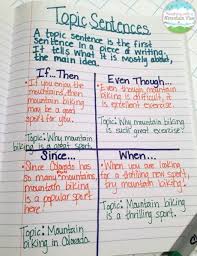 Topic Sentences
A topic sentence is the first
sentence in a piece of writing.
It tells what it is mostly about,
the main idea.
If...Then
• If you enjoy the
mountains, then
mountain biking
may be a great
sport for you.
Topic: Why mountain
biking is a great
sport.
Even Though...
• Even though mountain
biking is difficult, it
is excellent exercise.
Topic: Why mountain biking
is such great exercise!
Since...
• Since Colorado has
so many mountains,
mountain biking
is a popular sport
here!
Topic: Mountain
biking in Colorado.
When...
• When you are looking
for a thrilling new sport,
try mountain biking.
Topic: Mountain biking is
a thrilling sport.